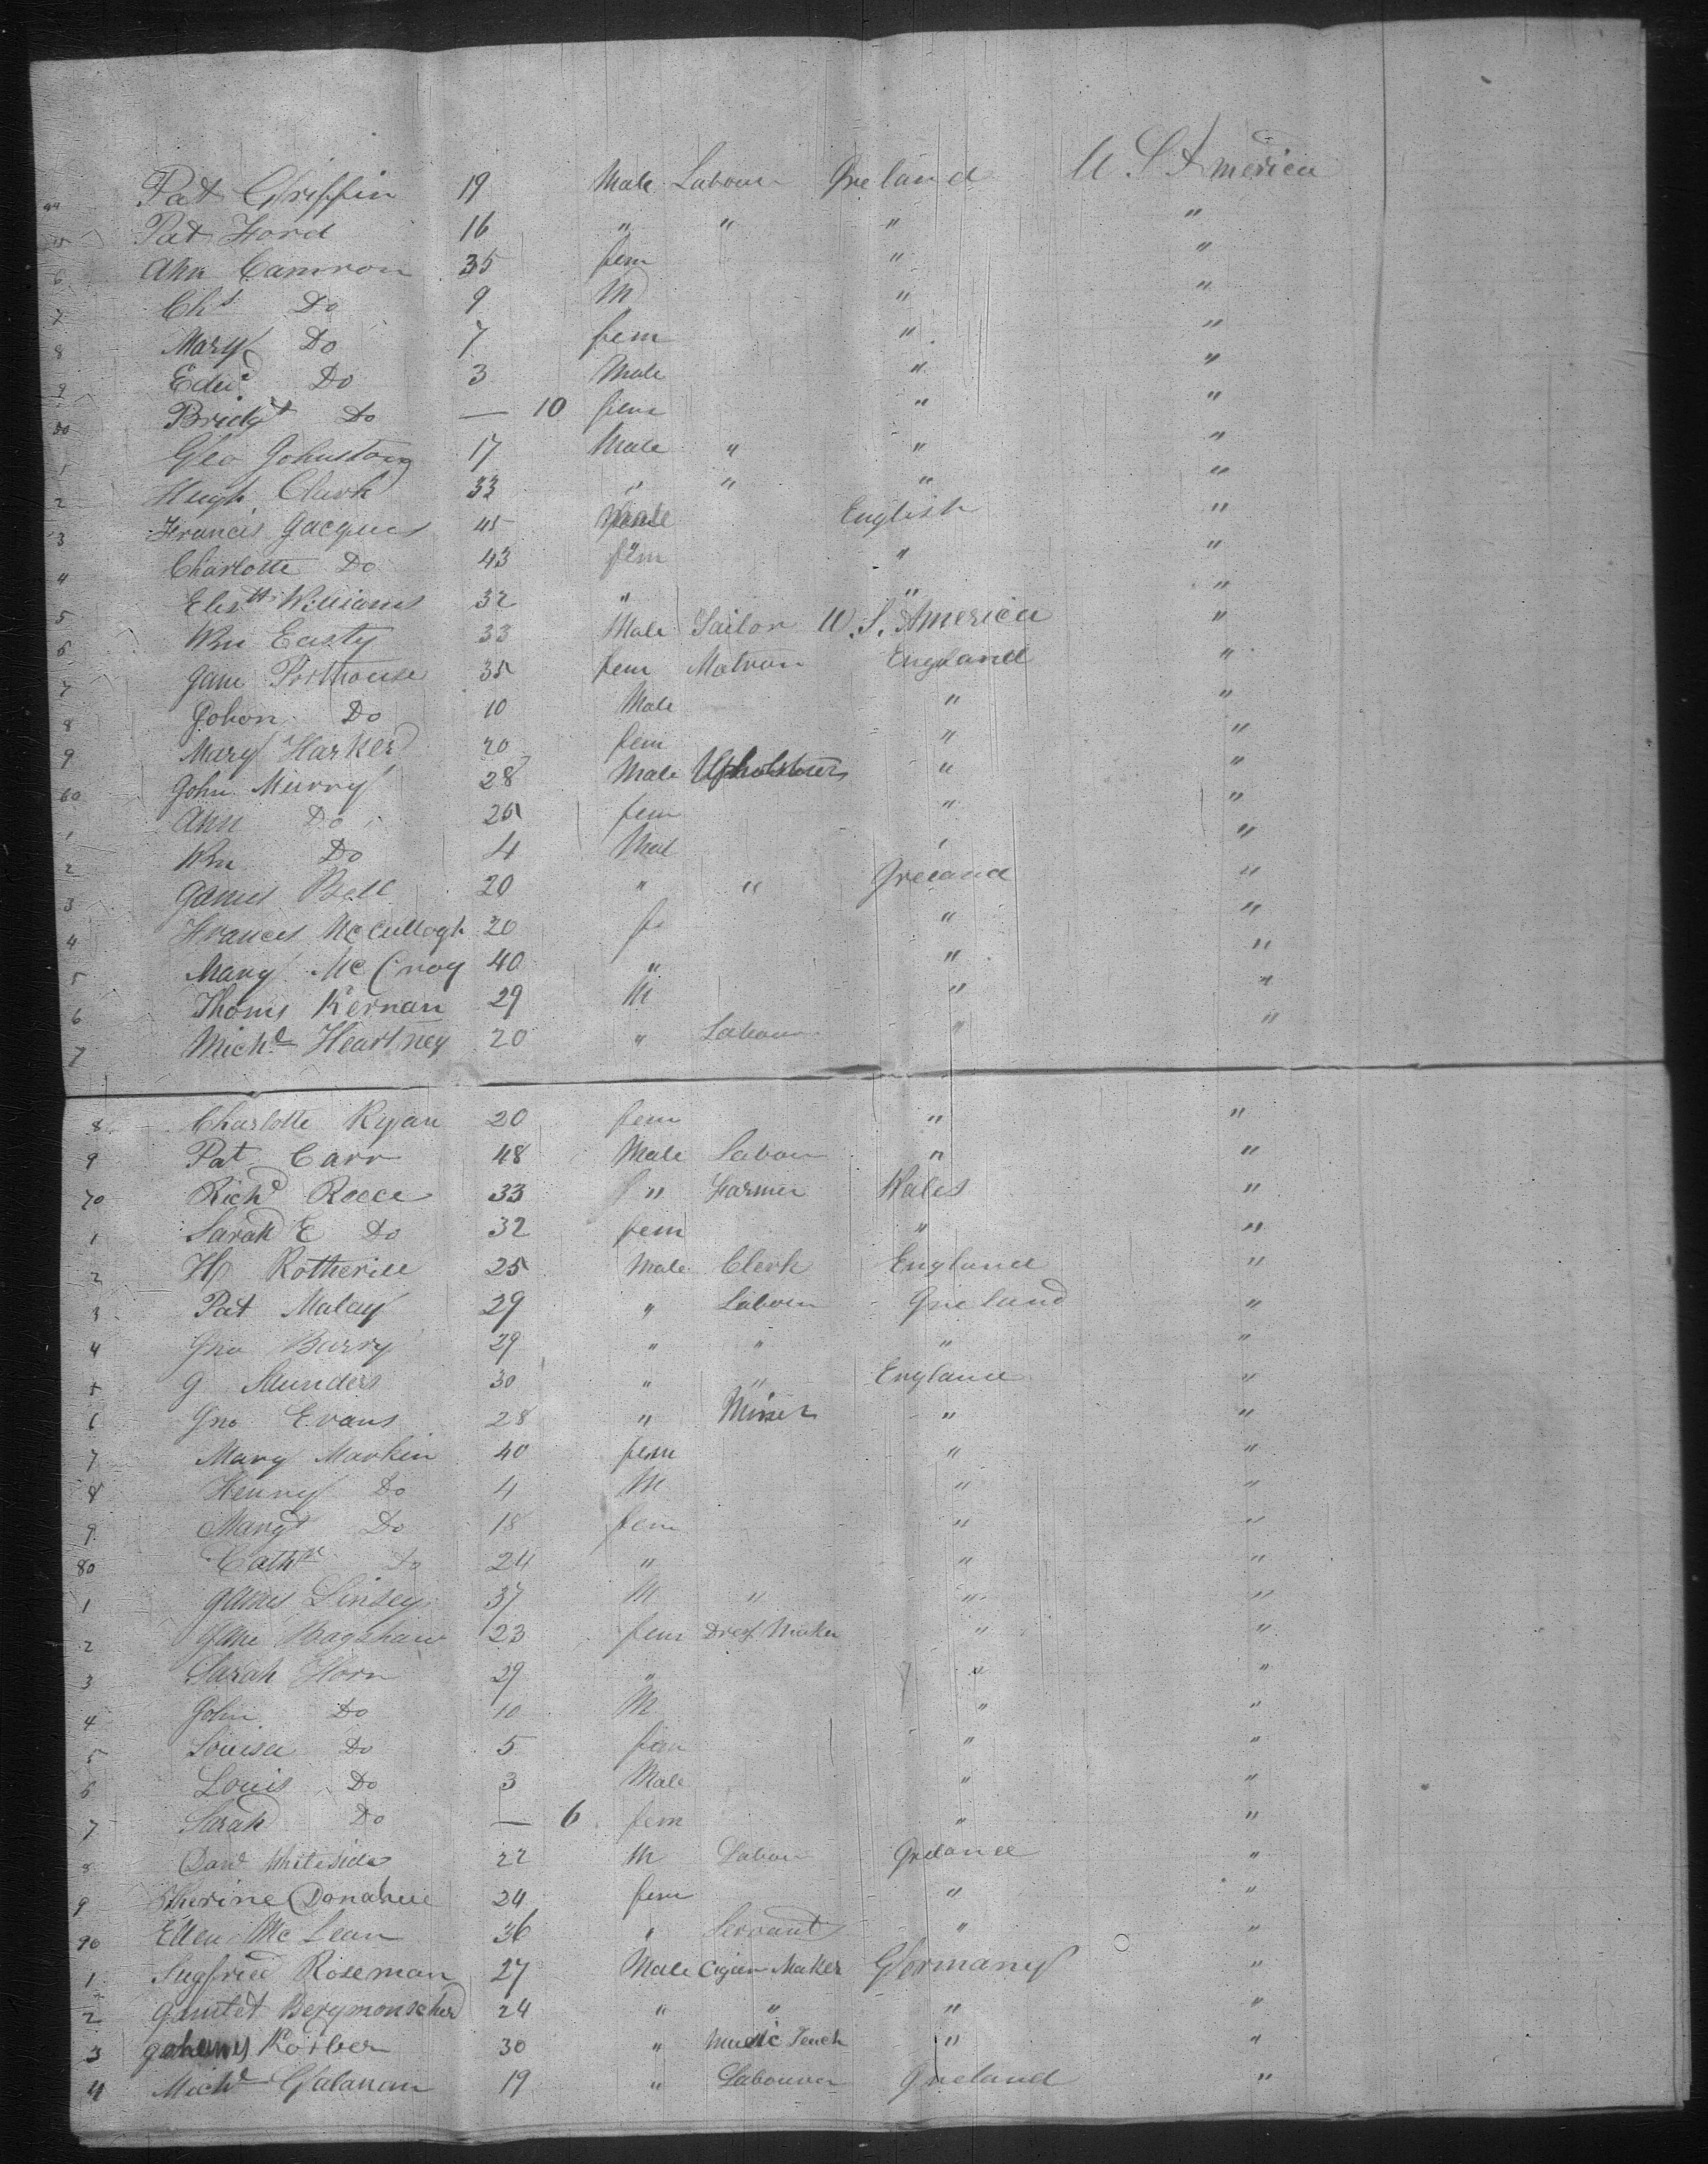 44 Pat Griffin 19 Male Labour Ireland U S America
5 Pat Ford 16 " " " "
6 Ann Camron 35 fem " "
7 Chs Do 9 M " "
8 Mary Do 7 fem " "
9 Edwd Do 3 Male " "
50 Bridgt Do — 10 fem " "
1 Geo Johnston 17 Male " " "
2 Hugh Clark 33 " " " "
3 Francis Jacques 45 Male English "
4 Charlotte Do 43 fem " "
5 Elizth Williams 32 " " "
6 Wm Easty 33 Male Sailor U.S. America "
7 Jane Porthouse 35 fem Matron England "
8 Johon Do 10 Male " "
9 Mary Harker 20 fem " "
60 John Murry 28 Male Upholsterer " "
1 Ann Do fem " "
2 Wm Do 4 Mal " "
3 James Bell 20 " " Ireland "
4 Frances McCullogh 20 fe " "
5 Mary McCroy 40 " " "
6 Thoms Kernan 29 M " "
7 Michl Heartney 20 " Labour " "
8 Charlotte Ryan 20 fem " "
9 Pat Carr 48 Male Labour " "
70 Richd Reece 33 " Farmer Wales "
1 Sarah E Do 32 fem " "
2 H Rotherill 25 Male Clerk England "
3 Pat Malay 29 " Labour Ireland "
4 Jno Barry 29 " " " "
5 J Saunders 30 " " England "
6 Jno Evans 28 " Miner " "
7 Mary Markin 40 fem " "
8 Henry Do 4 M " "
9 Margt Do 18 fem " "
80 Cathne Do 24 " " "
1 James Linsey 37 M " " "
2 Jane Bagshaw 23 fem Dress Maker " "
3 Sarah Horn 29 " " "
4 John Do 10 M " "
5 Louisa Do 5 fem " "
6 Louis Do 3 Male " "
7 Sarah Do — 6 fem " "
8 Davd Whiteside 22 M Labour Ireland "
9 Donahue 24 fem " "
90 Ellen McLean 36 " Servant " "
1 Sugfried Roseman 27 Male Cigar Maker Germany "
2 24 " " " "
3 30 " Music Teach " "
4 Michl Galanan 19 " Labourer Ireland "